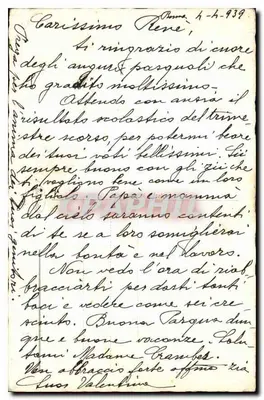 Roma 4-4-939
Carissimo Rene,
ti ringrazio di cuore
degli auguri pasquali che
ho gradito moltissimo.
Attendo con ansia il
risultato scolastico del trime
stre scorso, per potermi beare
dei tuoi voti bellissimi. Sii
sempre buono con gli zii che
ti vogliono bene come un loro
figlio. Papà e mammà
dal cielo saranno contenti
di te se a loro somiglierai
nella bontà e nel lavoro.
Non vedo l'ora di riab
bracciarti per darti tanti
baci e vedere come sei cre
sciuto. Buona Pasqua dun
que e buone vacanze. Salu
tami Madame
Un abbraccio forte affma zia
Valentina
Prega per l'anima dei tuoi genitori